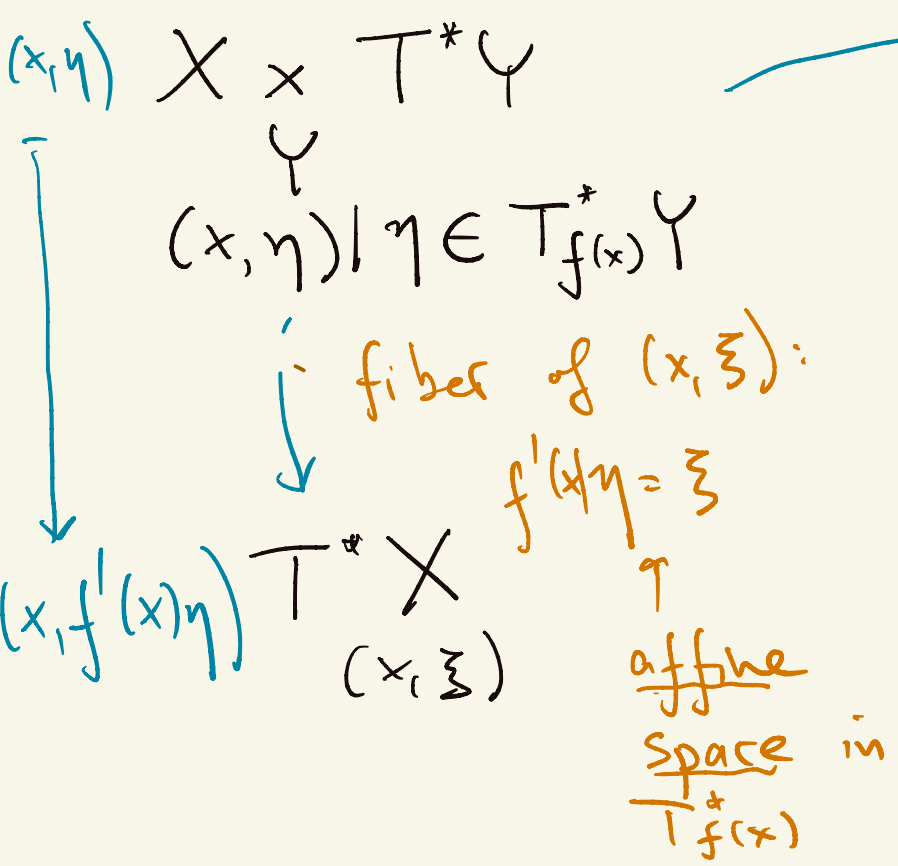 (x,η) X × T*Y
Y
(x,η) | η ∈ T*_{f(x)} Y
fiber of (x,ξ):
f'(x)η = ξ
(x,f'(x)η) T*X
(x,ξ)
affine
space in
T*_{f(x)}